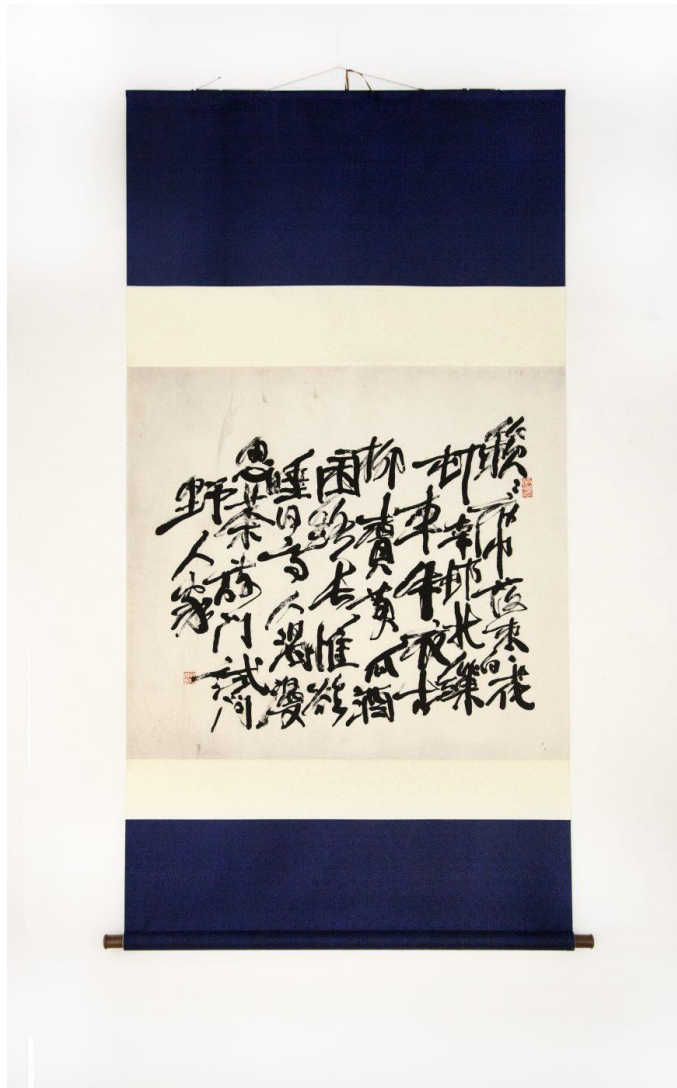 簌々衣巾落棗花
村南邨北繰
車牛衣古
柳賣黄瓜酒
困路長惟欲
睡日高人渴漫
思茶敲門試問
野人家